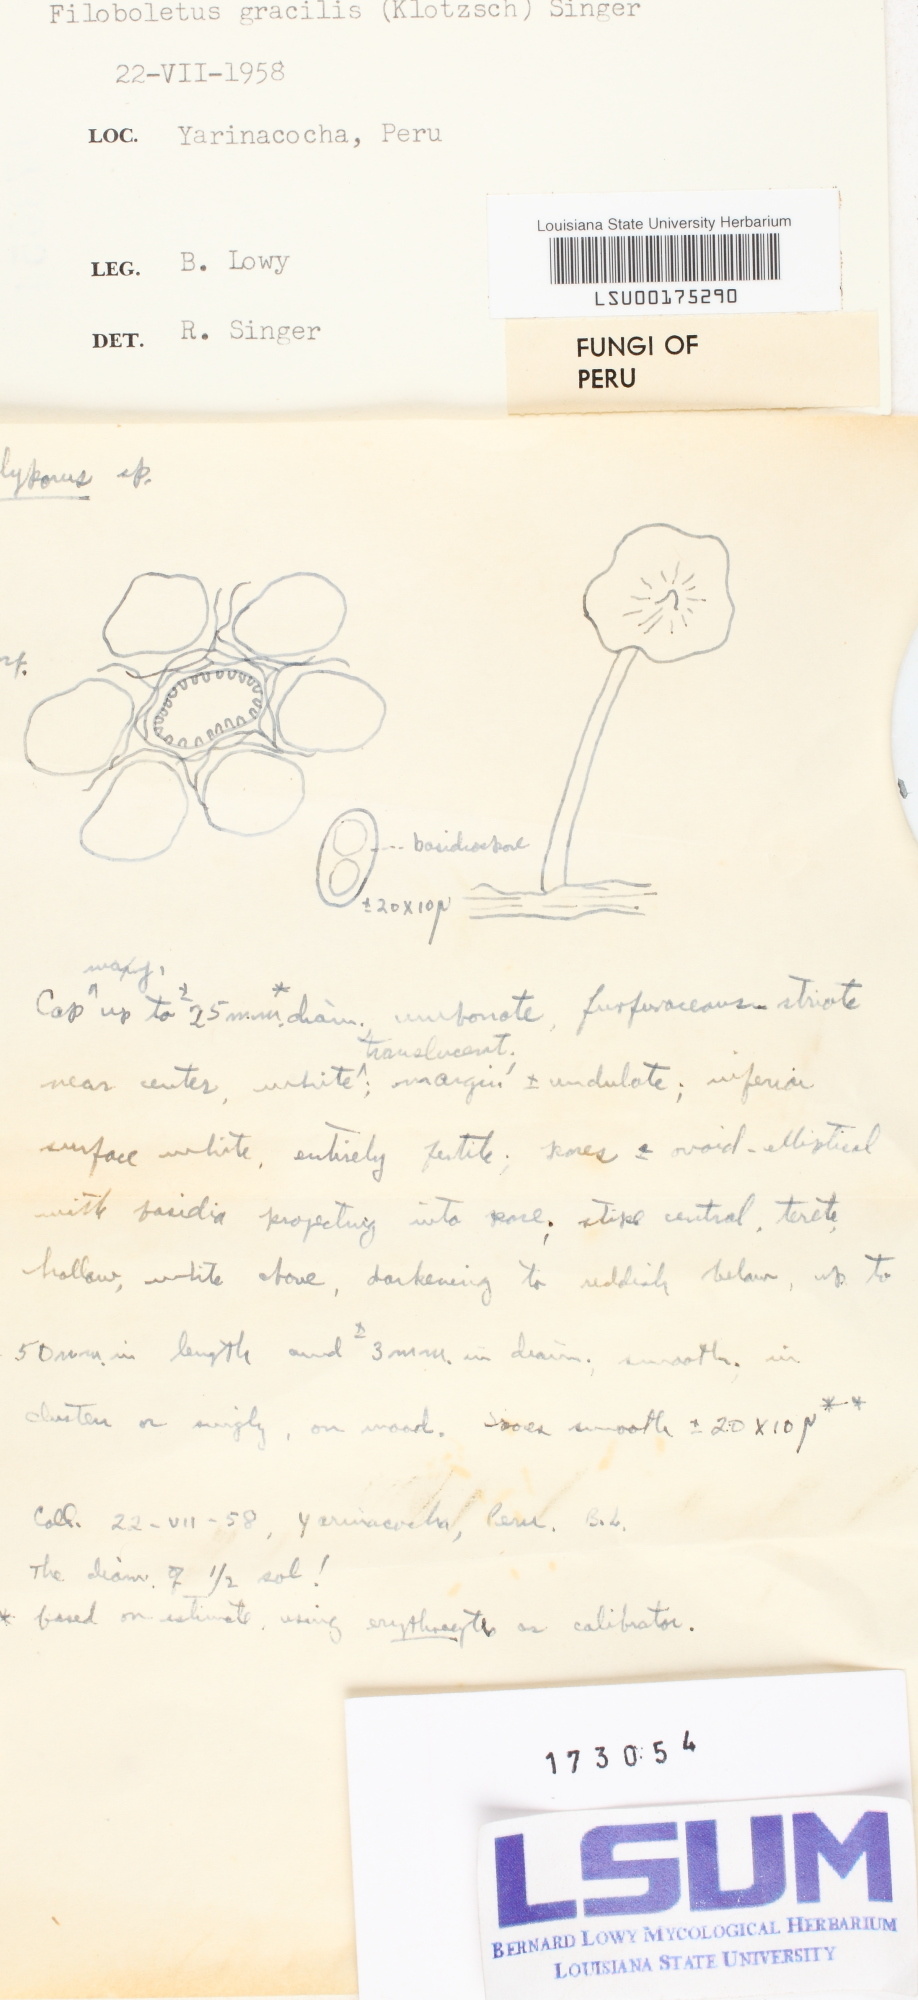 Filoboletus gracilis (Klotzsch) Singer
22-VII-1958
LOC. Yarinacocha, Peru
Louisiana State University Herbarium
LSU00175290
LEG. B. Lowy
DET. R. Singer
FUNGI OF
PERU
lyporus sp.
basidiospore
±20x10μ
waxy,
Cap ^ up to ± 25mm.* diam., umbonate, furfuraceous-striate
translucent;
near center, white ^; margin ± undulate; inferior
surface white, entirely fertile; pores ± ovoid-elliptical
with basidia projecting into pore; stipe central, terete,
hollow, white above, darkening to reddish below, up to
50mm. in length and ± 3mm. in diam.; smooth. in
clusters or singly, on wood. Spores smooth ± 20x10μ**
Coll. 22-VII-58, Yarinacocha, Peru. B.L.
The diam. of 1/2 sol!
* based on estimate, using erythrocyte as calibrator.
173054
LSUM
BERNARD LOWY MYCOLOGICAL HERBARIUM
LOUISIANA STATE UNIVERSITY